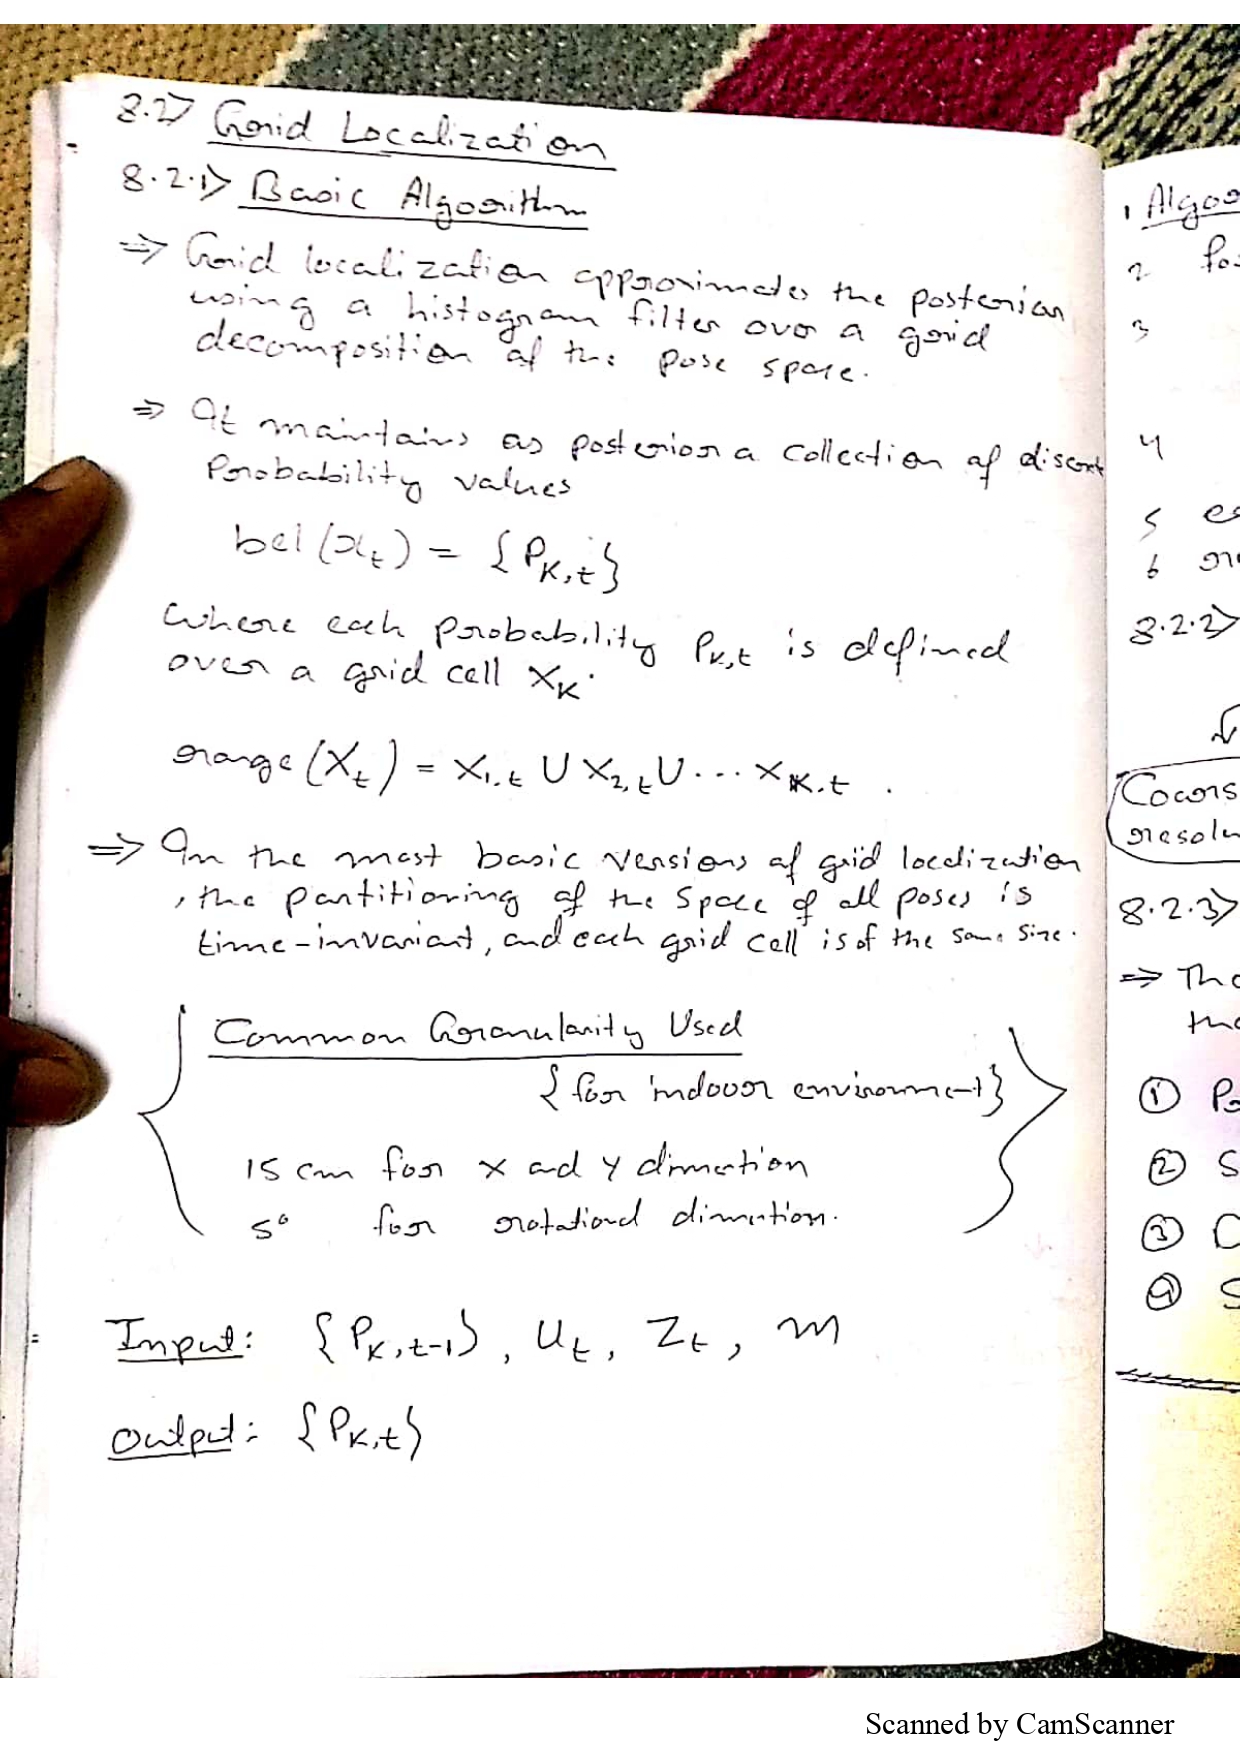 8.2> Grid Localization
8.2.1> Basic Algorithm
⇒ Grid localization approximates the posterior
using a histogram filter over a grid
decomposition of the pose space.
⇒ It maintains as posterior a collection of discrete
Probability values
bel(x_t) = {P_K,t}
where each probability P_K,t is defined
over a grid cell X_K.
range(X_t) = X_1,t U X_2,t U ... X_K,t .
⇒ In the most basic versions of grid localization
, the partitioning of the space of all poses is
time-invariant, and each grid cell is of the same size.
Common Granularity Used
{for indoor environment}
15 cm for x and y dimention
5° for rotational dimention.
Input: {P_K,t-1}, U_t, Z_t, m
Output: {P_K,t}
1
2
3
4
5
6
8.2.2>
8.2.3>
⇒
①
②
③
④
Scanned by CamScanner